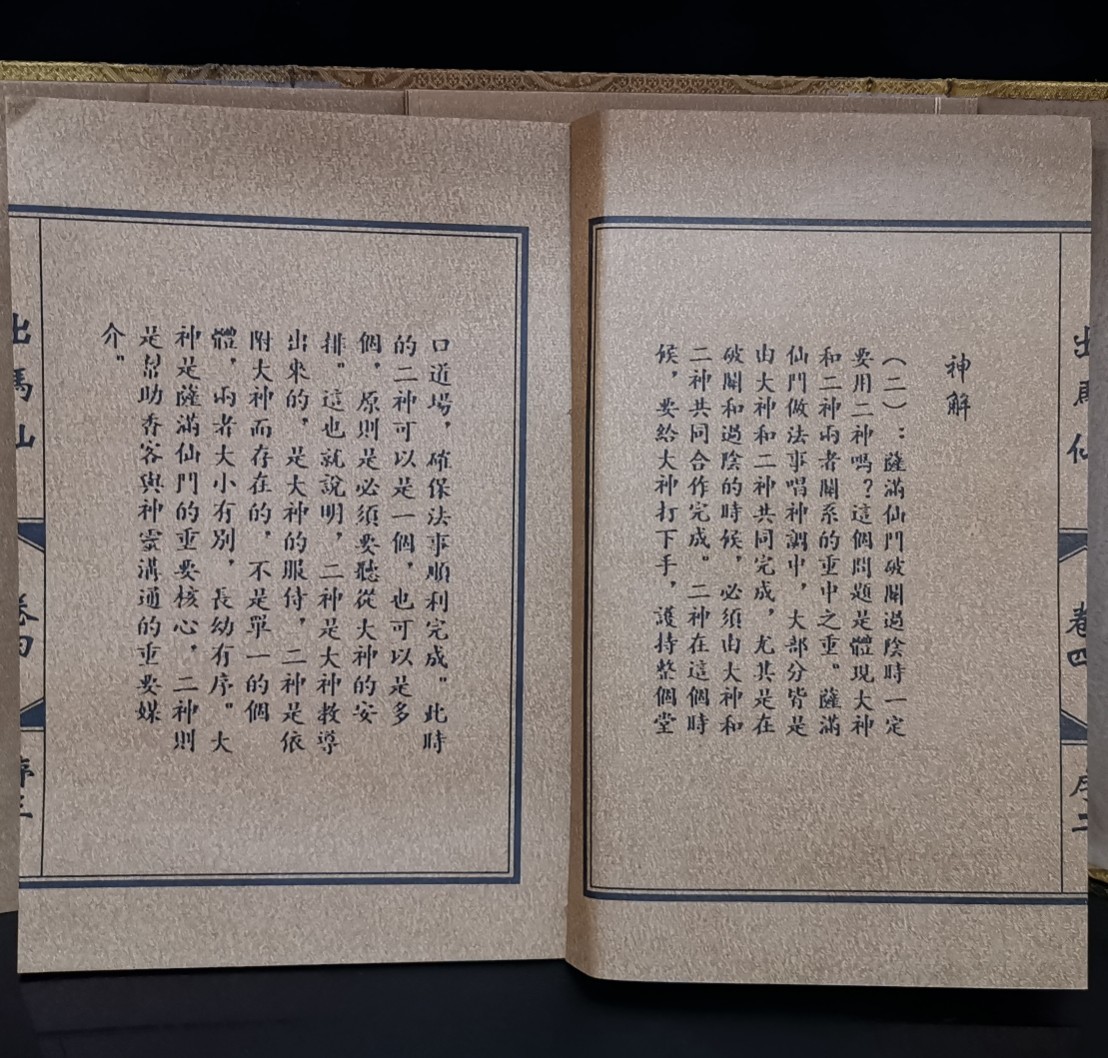 出馬仙
卷四
序二
神解
（二）：薩滿仙門破關過陰時一定
要用二神嗎？這個問題是體現大神
和二神兩者關系的重中之重。薩滿
仙門做法事唱神調中，大部分皆是
由大神和二神共同完成，尤其是在
破關和過陰的時候，必須由大神和
二神共同合作完成。二神在這個時
候，要給大神打下手，護持整個堂
口道場，確保法事順利完成。此時
的二神可以是一個，也可以是多
個，原則是必須要聽從大神的安
排。這也就說明，二神是大神教導
出來的，是大神的服侍，二神是依
附大神而存在的，不是單一的個
體，兩者大小有別，長幼有序。大
神是薩滿仙門的重要核心，二神則
是幫助香客與神靈溝通的重要媒
介。
出馬仙
卷四
序三